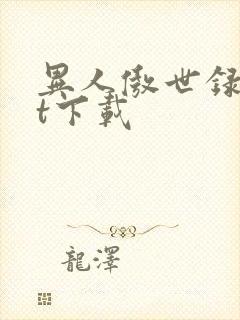 異人傲世録
t下載
龍澤